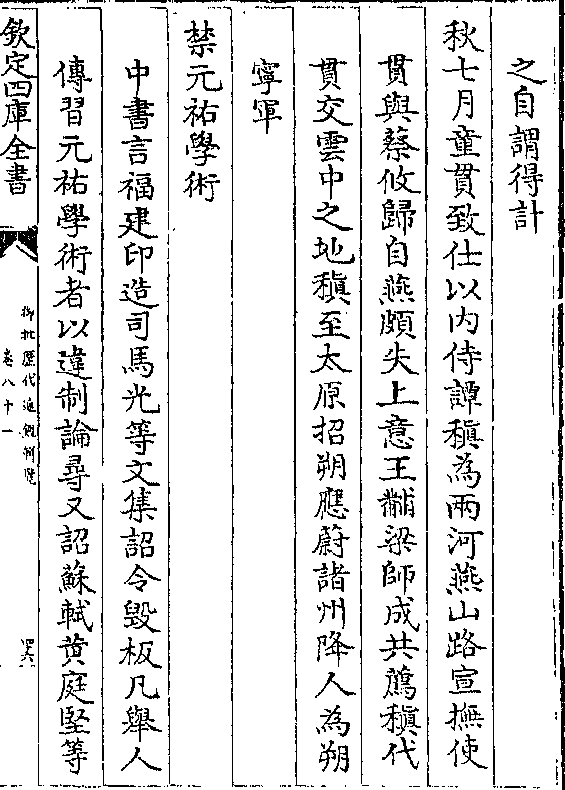 之自謂得計
秋七月童貫致仕以内侍譚稹為兩河燕山路宣撫使
貫與蔡攸歸自燕頗失上意王黼梁師成共薦稹代
貫交雲中之地稹至太原招朔應蔚諸州降人為朔
寧軍
禁元祐學術
中書言福建印造司馬光等文集詔令毁板凡舉人
傳習元祐學術者以違制論尋又詔蘇軾黄庭堅等
欽定四庫全書
御批歷代通鑑輯覽
卷八十一